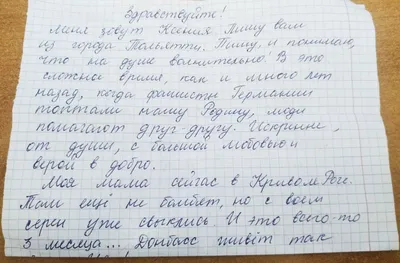 Здравствуйте!
Меня зовут Ксения. Пишу вам
из города Тольятти. Пишу и понимаю,
что на душе волнительно. В это
сложное время, как и много лет
назад, когда фашисты Германии
топтали нашу Родину, люди
помагают друг другу. Искринне,
от души, с большой любовью и
верой в добро.
Моя мама сейчас в Кривом Роге.
Там ещё не бомбят, но с воем
серен уже свыклись. И это всего-то
3 месяца... Донбасс живёт так